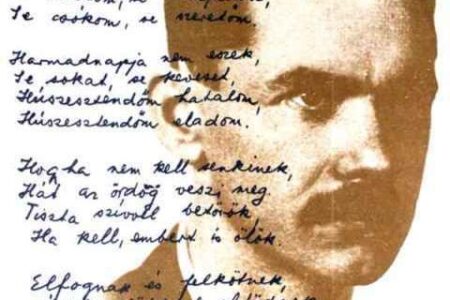 Se csókom, se szeretőm.
Harmadnapja nem eszek,
Se sokat, se keveset,
Húszesztendőm hatalom,
Húszesztendőm eladom.
Hogyha nem kell senkinek,
Hát az ördög veszi meg.
Tiszta szívvel betörök,
Ha kell, embert is ölök.
Elfognak és felkötnek,